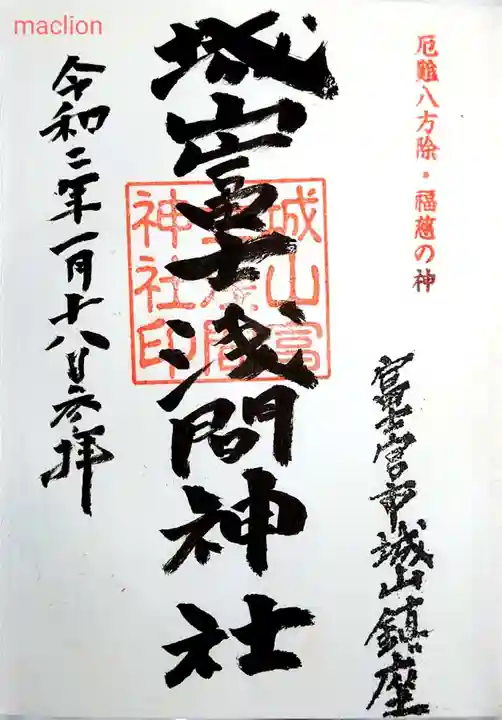 maclion
厄難八方除・福越の神
富士宮市城山鎮座
城山富士浅間神社
城山富
士浅間
神社印
令和二年一月十八日参拝